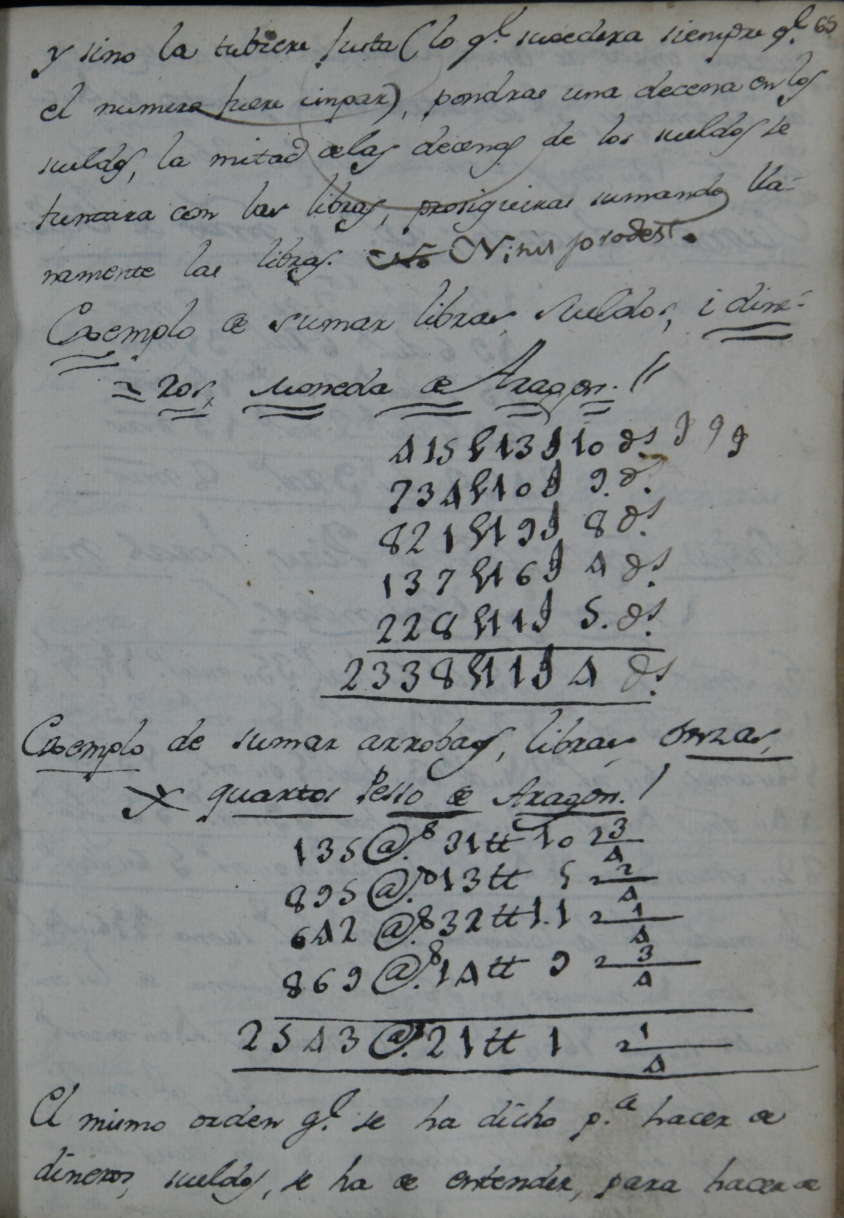 65
y sino la tubiere justa (lo q.l sucedera siempre q.l
el numero fuere impar), pondras una decena en los
sueldos, la mitad de las decenas de los sueldos se
juntara con las libras, prosiguiras sumando lla-
namente las libras. Nihil prodest.
Exemplo de sumar libras sueldos, i dine-
ros, Moneda de Aragon. //
415 ℔ 13 ʃ 10 ds
734 ℔ 10 ʃ 9. ds.
821 ℔ 19 ʃ 8 ds
137 ℔ 16 ʃ 4 ds.
228 ℔ 11 ʃ 5. ds.
2338 ℔ 11 ʃ 4 ds.
Exemplo de sumar arrobas, libras onzas,
y quartos Peso de Aragon. /
135 @.s 31 tt 10 2 3/4
895 @.s 13 tt 5 2 2/4
642 @.s 32 tt 11 2 1/4
869 @.s 14 tt 9 2 3/4
2543 @.s 21 tt 1 2 1/4
El mismo orden q.l se ha dicho p.a hacer de
dineros, sueldos, se ha de entender, para hacer de